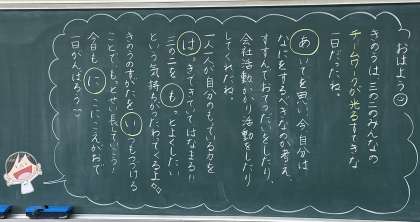 おはよう
きのうは三の二のみんなの
チームワークが光るすてきな
一日だったね。
あいてを思い、今自分は
なにをするべきなのか考え、
すすんでおてつだいをしたり、
会社活動、かかり活動をしたり
してくれたね。
一人一人が自分のもっている力を
はっきできていてはなまる!!
三の二をもっとよくしたい
という気持ちがつたわってくるよ
きのうのすがたをいつもつづける
ことで、もっとせい長していこう!
今日もにこにこえがおで
一日がんばろう